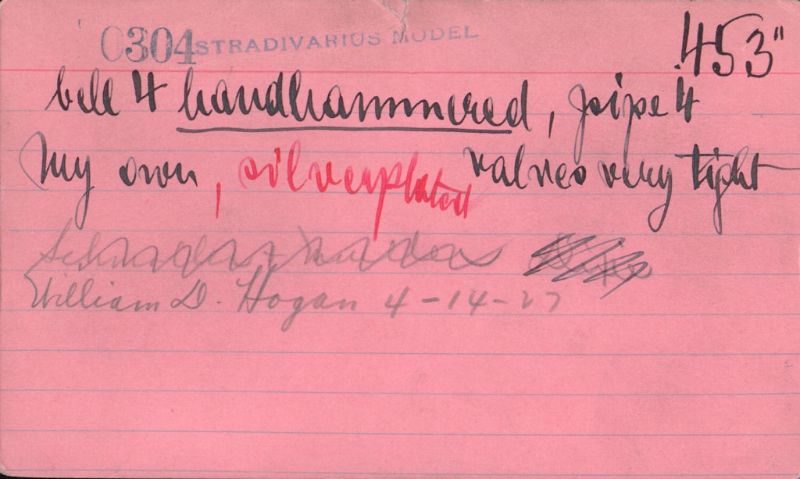 0304 STRADIVARIUS MODEL .453"
bell 4 handhammered, pipe 4
My own, silverplated valves very tight
William D. Hogan 4-14-27